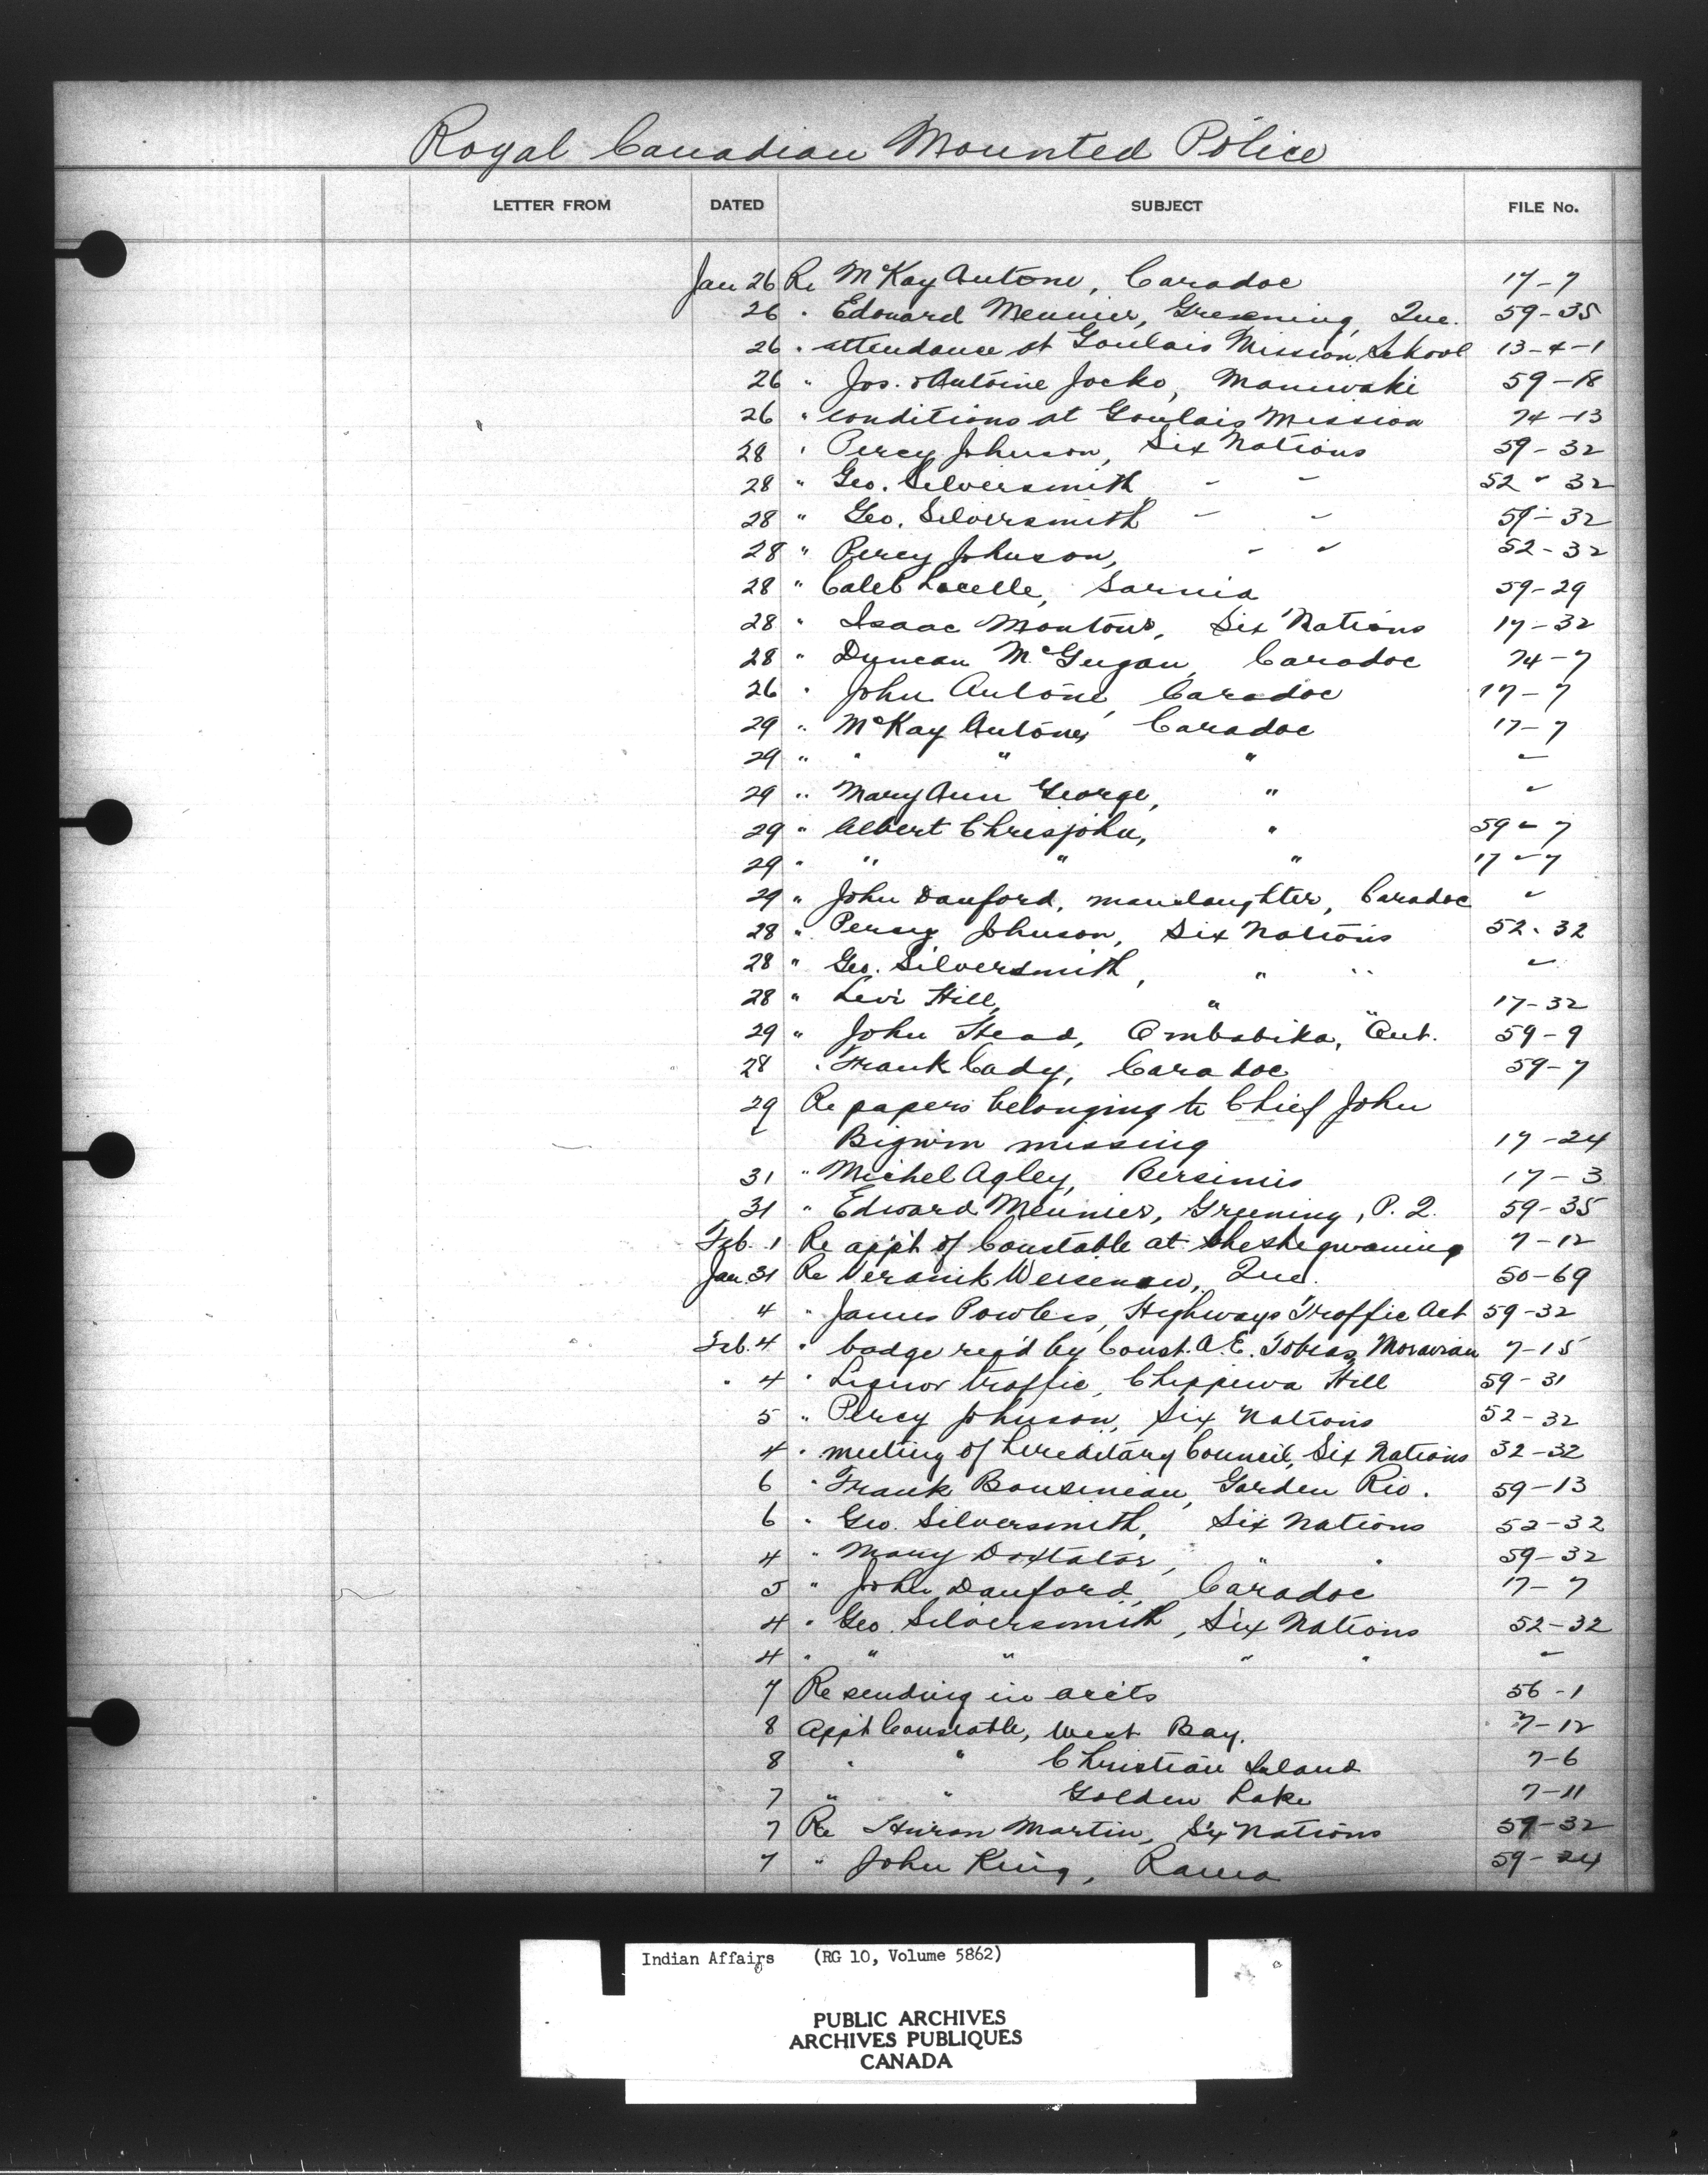 Royal Canadian Mounted Police
LETTER FROM DATED SUBJECT FILE No.
Jan 26 Re McKay Antone, Caradoc 17-7
26 " Edouard Meunier, Greening, Que. 59-35
26 " attendance at Goulais Mission School 13-4-1
26 " Jos. & Antoine Jocko, Maniwaki 59-18
26 " conditions at Goulais Mission 74-13
28 " Percy Johnson, Six Nations 59-32
28 " Geo. Silversmith " " 52-32
28 " Geo. Silversmith " " 59-32
28 " Percy Johnson, " " 52-32
28 " Caleb Lacelle, Sarnia 59-29
28 " Isaac Montour, Six Nations 17-32
28 " Duncan McGugan, Caradoc 74-7
26 " John Antone, Caradoc 17-7
29 " McKay Antone, Caradoc 17-7
29 " " " " "
29 " Mary Ann George, " "
29 " Albert Chrisjohn, " 59-7
29 " " " " 17-7
29 " John Danford, manslaughter, Caradoc "
28 " Percy Johnson, Six Nations 52-32
28 " Geo. Silversmith, " " "
28 " Levi Hill, " " 17-32
29 " John Head, Ombabika, Ont. 59-9
28 " Frank Cady, Caradoc 59-7
29 Re papers belonging to Chief John
Bigwin missing 17-24
31 " Michel Agley, Bersimis 17-3
31 " Edward Meunier, Greening, P.Q. 59-35
Feb. 1 Re app't of Constable at Sheshegwaning 7-12
Jan. 31 Re Que. 50-69
4 " James Powless, Highways Traffic Act 59-32
Feb. 4 " badge req'd by Const. A.E. Tobias, Moravian 7-15
" 4 " Liquor traffic, Chippewa Hill 59-31
5 " Percy Johnson, Six Nations 52-32
4 " meeting of hereditary Council, Six Nations 32-32
6 " Frank Bousineau, Garden Riv. 59-13
6 " Geo. Silversmith, Six Nations 52-32
4 " Mary Doxtator, " " 59-32
5 " John Danford, Caradoc 17-7
4 " Geo. Silversmith, Six Nations 52-32
4 " " " " " "
7 Re sending in accts 56-1
8 App't Constable, West Bay. 7-12
8 " " Christian Island 7-6
7 " " Golden Lake 7-11
7 Re Huron Martin, Six Nations 59-32
7 " John King, Rama 59-24
Indian Affairs (RG 10, Volume 5862)
PUBLIC ARCHIVES
ARCHIVES PUBLIQUES
CANADA